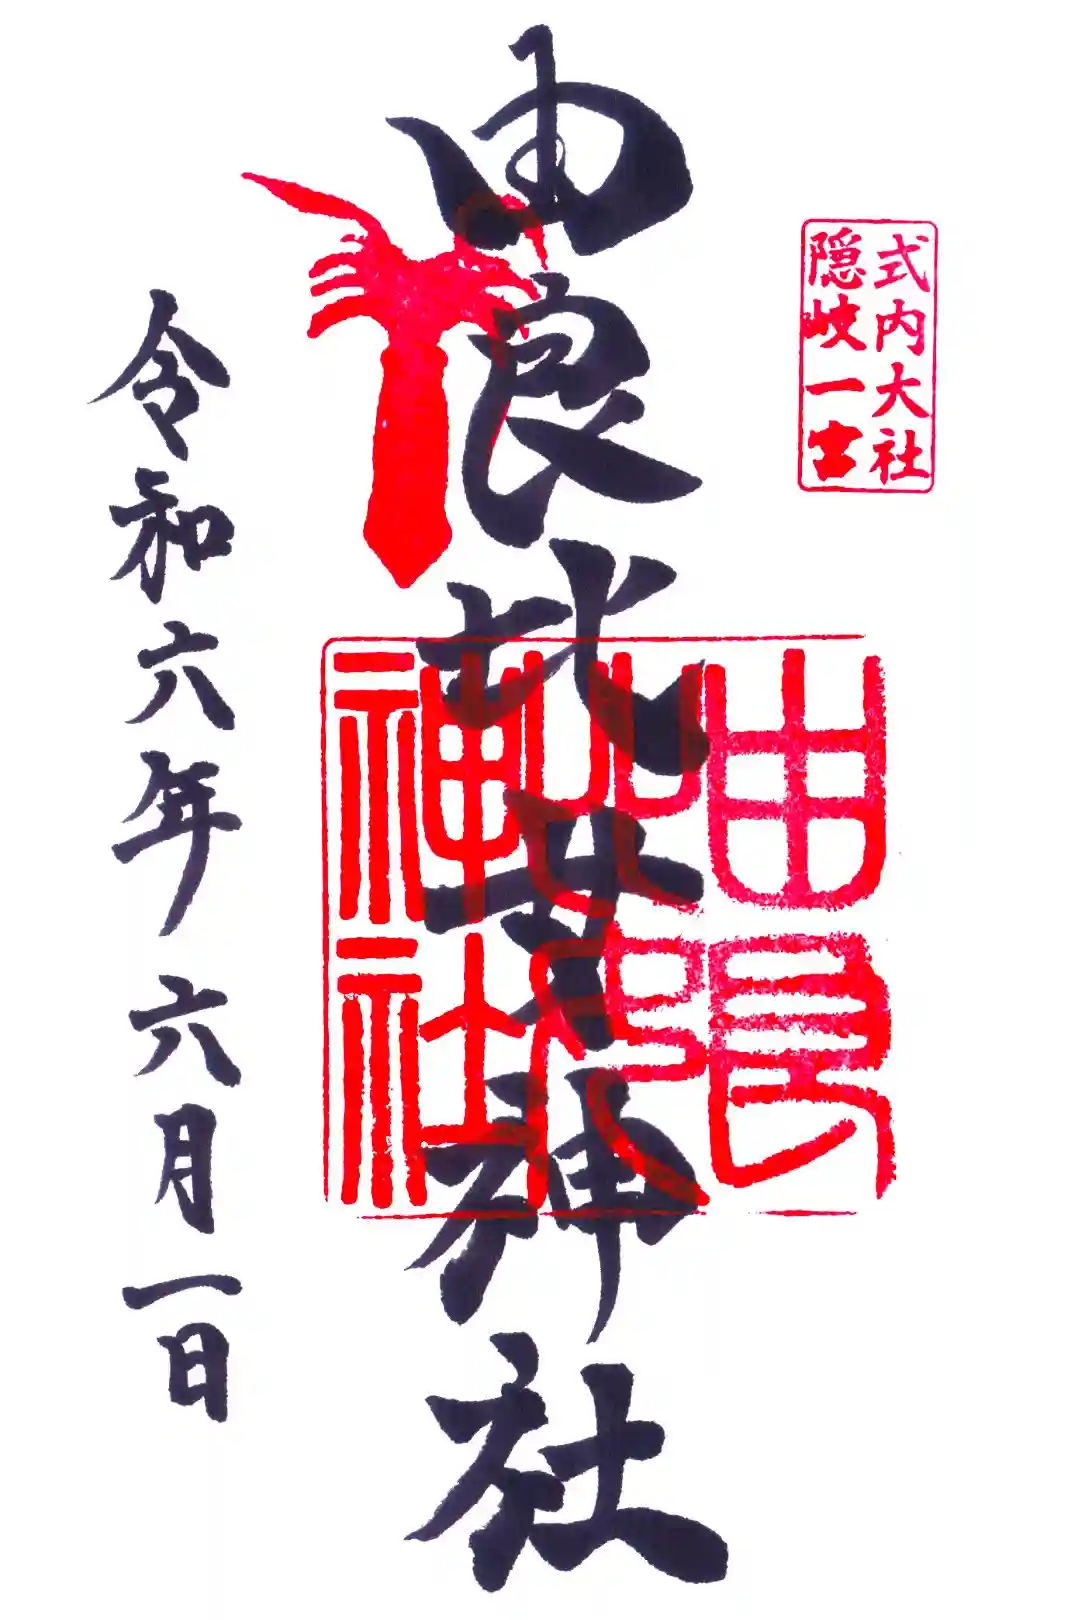 式内大社
隠岐一宮
由良比女神社
由良
比女
神社
令和六年六月一日